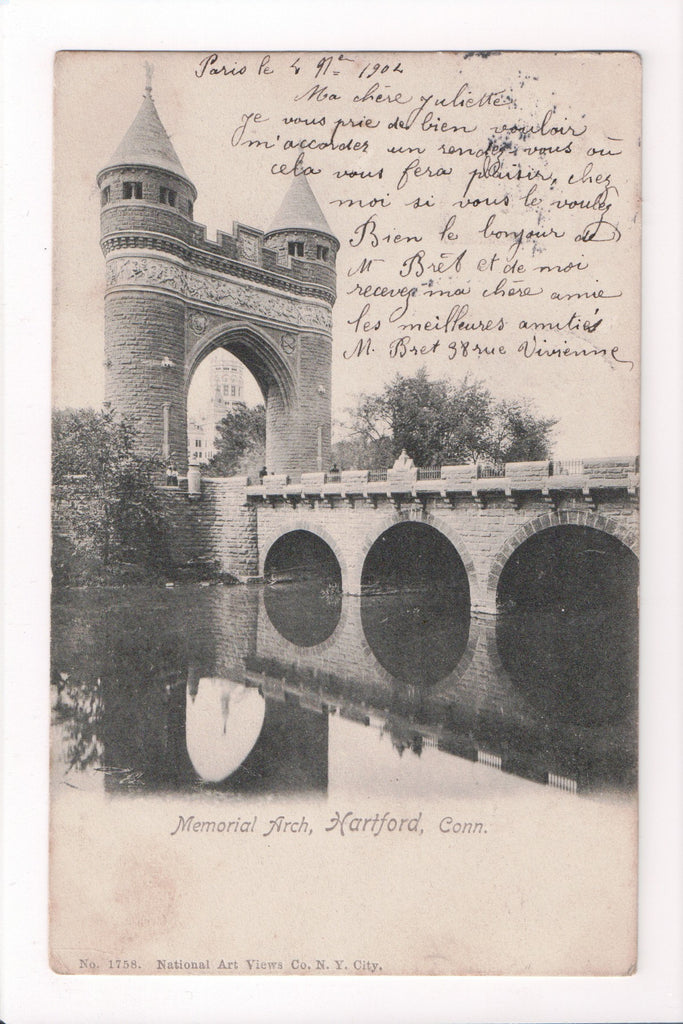 Paris le 4 9bre 1902
Ma chère Juliette
Je vous prie de bien vouloir
m'accorder un rendez-vous où
cela vous fera plaisir, chez
moi si vous le voulez
Bien le bonjour de
Mr Bret et de moi
recevez ma chère amie
les meilleures amitiés
M. Bret 38 rue Vivienne
Memorial Arch, Hartford, Conn.
No. 1758. National Art Views Co. N. Y. City.